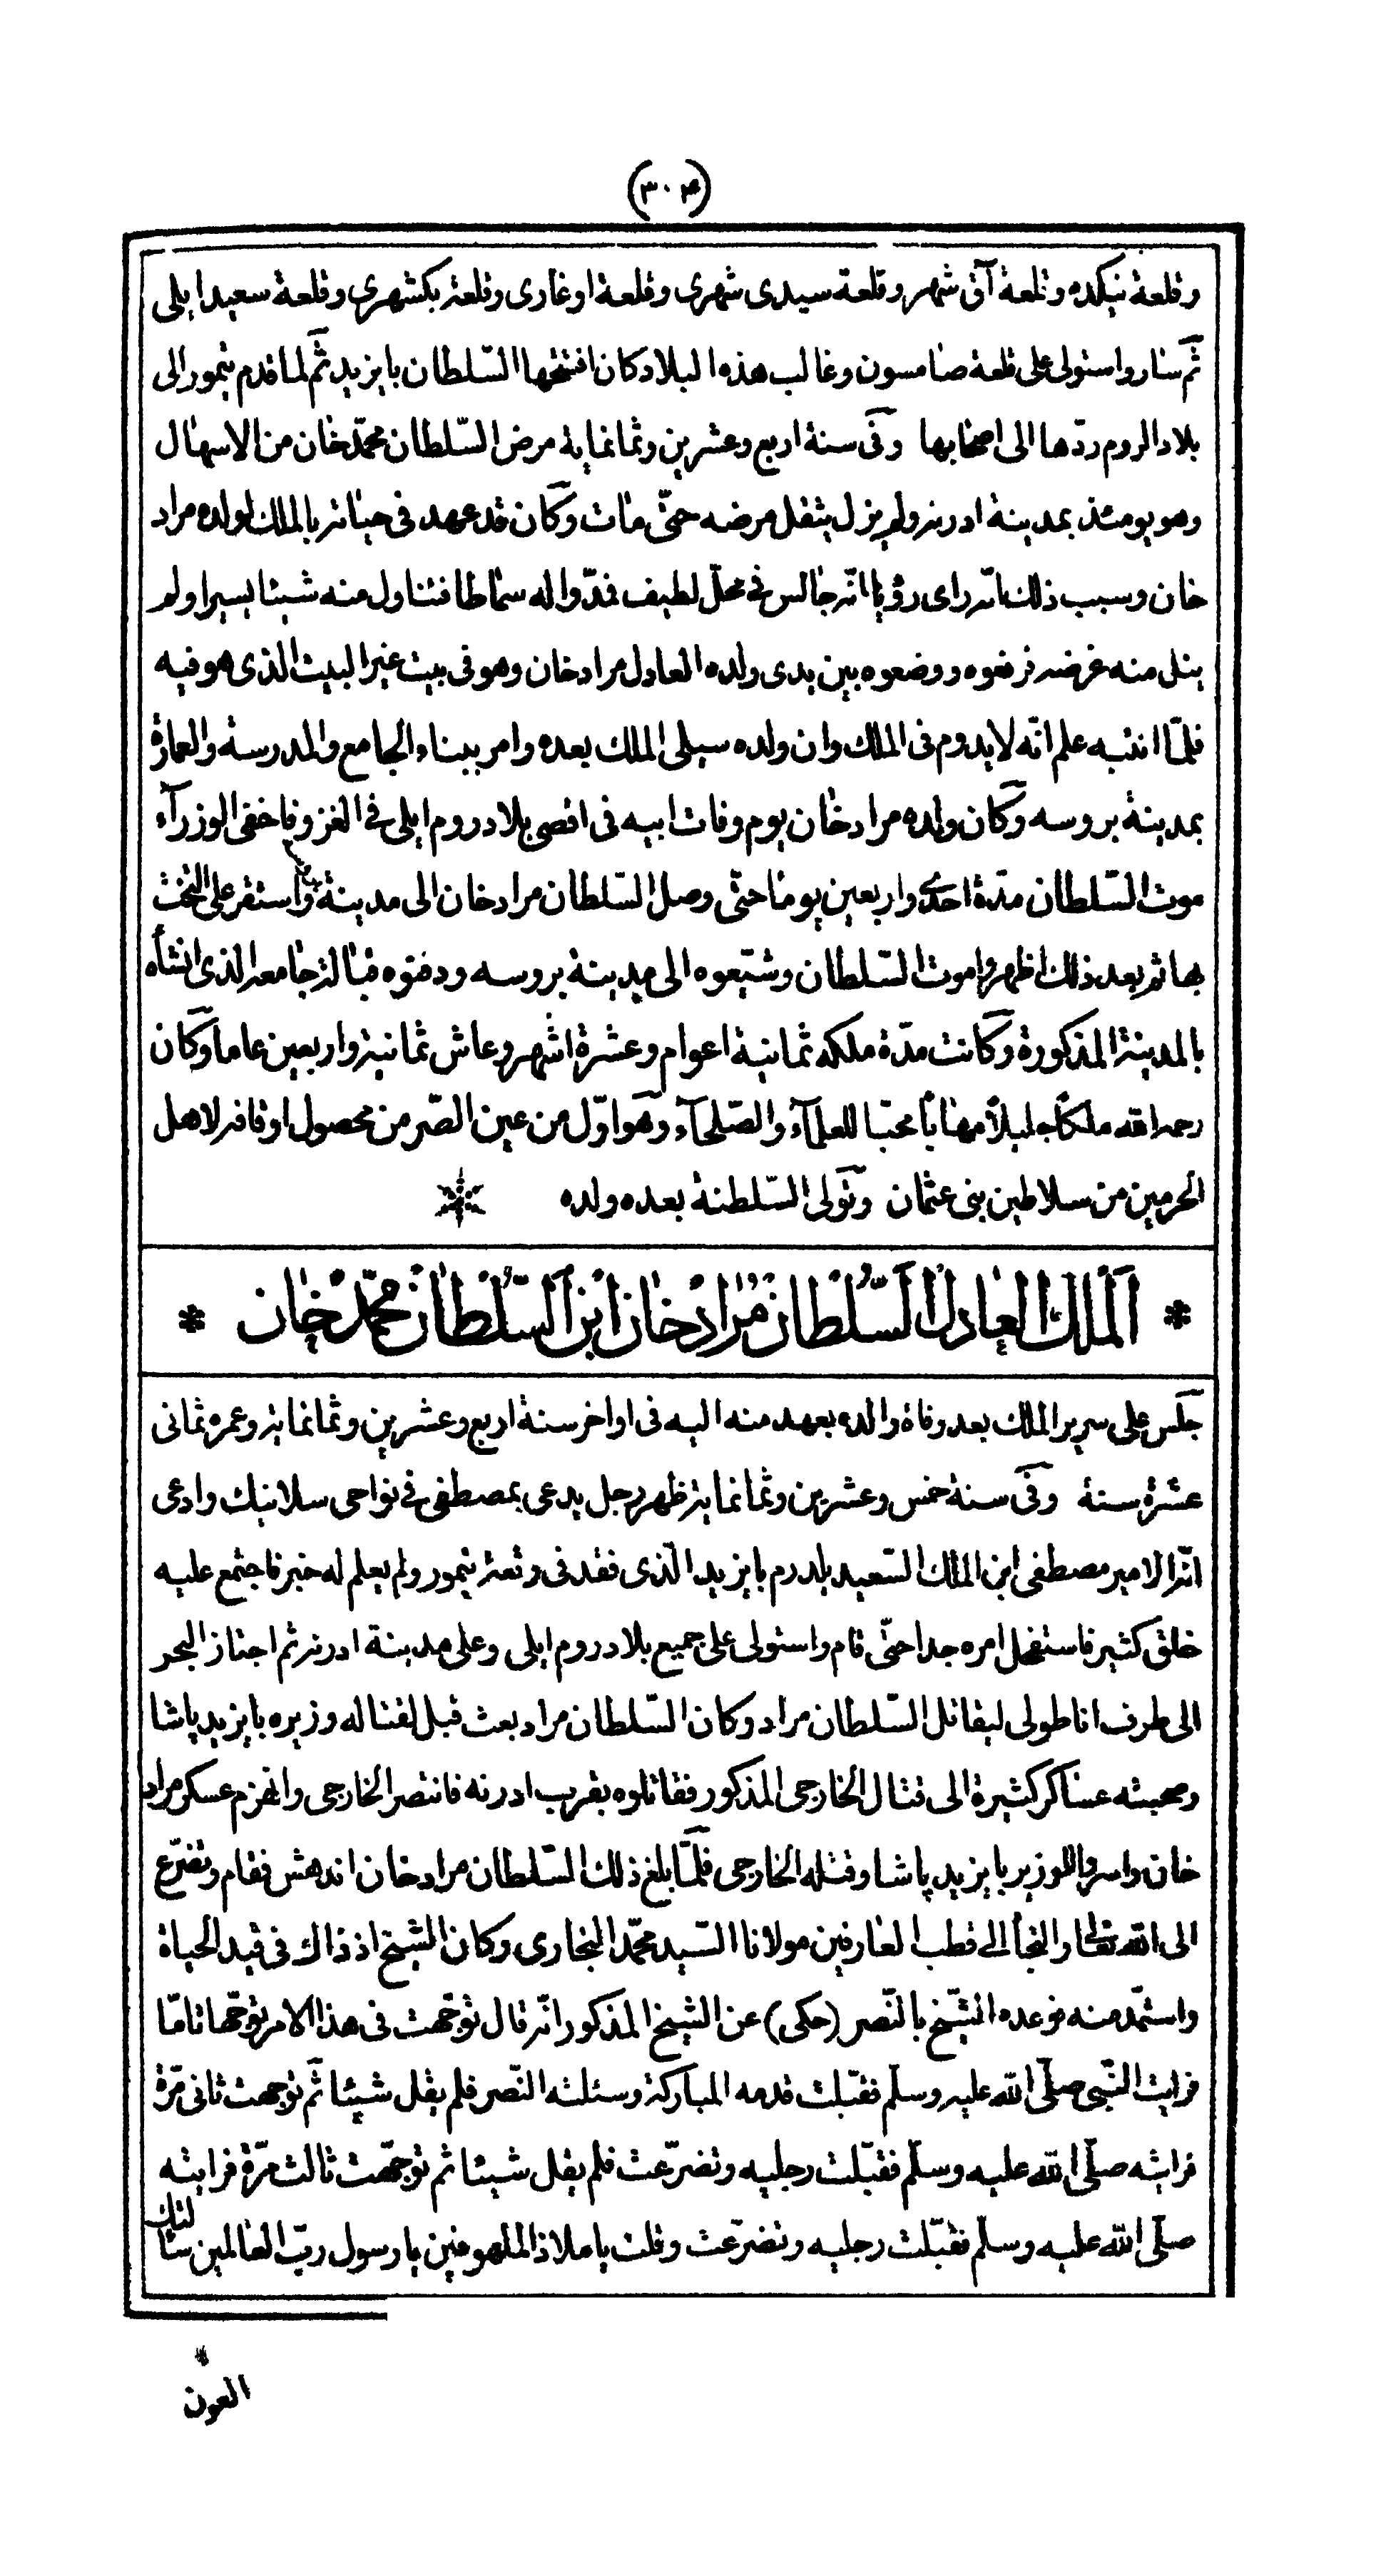 (٣٠٤)
وقلعة نيكده وقلعة آق شهر وقلعة سيدى شهرى وقلعة اوغارى وقلعة بكشهرى وقلعة سعيد ايلى
ثم سار واستولى على قلعة صامسون وغالب هذه البلاد كان افتتحها السلطان بايزيد ثم لما قدم تيمور الى
بلاد الروم ردّها الى اصحابها وفى سنة اربع وعشرين وثمانماية مرض السّلطان محمّد خان من الاسهال
وهو يومئذ بمدينة ادرنه ولم يزل يثقل مرضه حتّى مات وكان قد عهد فى حياته بالملك لولده مراد
خان وسبب ذلك انّه راى رؤيا انّه جالس فى محلّ لطيف فمدّوا له سماطا فتناول منه شيئا يسيرا ولم
ينل منه غرضه فرفعوه ووضعوه بين يدى ولده العادل مراد خان وهو فى بيت غير البيت الذى هو فيه
فلمّا انتبه علم انّه لا يدوم فى الملك وان ولده سيلى الملك بعده وامر ببناء الجامع والمدرسة والعمارة
بمدينة بروسه وكان ولده مراد خان يوم وفات ابيه فى اقصى بلاد روم ايلى فى الغزو فاخفى الوزرآء
موت السّلطان مدّة احدى واربعين يوما حتّى وصل السّلطان مراد خان الى مدينة واستقر على التخت
بها ثم بعد ذلك اظهروا موت السّلطان وشيّعوه الى مدينة بروسه ودفنوه قبالة جامعه الذى انشأه
بالمدينة المذكورة وكانت مدّة ملكه ثمانية اعوام وعشرة اشهر وعاش ثمانية واربعين عاما وكان
رحمه الله ملكا جليلا مهابا محبّا للعلمآء والصّلحآء وهو اوّل من عين الصّر من محصول اوقافه لاهل
الحرمين من سلاطين بنى عثمان وتولى السّلطنة بعده ولده
* اَلْمَلِك العَادِل السُّلْطَان مُرَاد خَان ابن السُّلْطَان مُحَمَّد خَان *
جلس على سرير الملك بعد وفاة والده بعهد منه اليه فى اواخر سنة اربع وعشرين وثمانماية وعمره ثمانى
عشرة سنة وفى سنة خمس وعشرين وثمانماية ظهر رجل يدعى بمصطفى فى نواحى سلانيك وادعى
انّه الامير مصطفى ابن الملك السّعيد يلدرم بايزيد الّذى فقد فى وقعة تيمور ولم يعلم له خبر فاجتمع عليه
خلق كثير فاستفحل امره جدا حتّى قام واستولى على جميع بلاد روم ايلى وعلى مدينة ادرنه ثم اجتاز البحر
الى طرف اناطولى ليقاتل السّلطان مراد وكان السّلطان مراد بعث قبل لقتاله وزيره بايزيد پاشا
وصحبته عساكر كثيرة الى قتال الخارجى المذكور فقاتلوه بقرب ادرنه فانتصر الخارجى وانهزم عسكر مراد
خان واسروا الوزير بايزيد پاشا وقتله الخارجى فلمّا بلغ ذلك السّلطان مراد خان اندهش فقام وتضرّع
الى الله تعالى والتجأ الى قطب العارفين مولانا السّيد محمّد البخارى وكان الشيخ اذ ذاك فى قيد الحياة
واستمّد منه فوعده الشّيخ بالنّصر (حكى) عن الشيخ المذكور انّه قال توجّهت فى هذا الامر توجّها تامّا
فرايت النّبى صلّى الله عليه وسلّم فقبّلت قدمه المباركة وسئلته النّصر فلم يقل شيئا ثم توجهت ثانى مرّة
فرايته صلّى الله عليه وسلّم فقبّلت رجليه وتضرّعت فلم يقل شيئا ثم توجّهت ثالث مرّة فرايته
صلّى الله عليه وسلّم فقبّلت رجليه وتضرّعت وقلت يا ملاذ الملهوفين يا رسول ربّ العالمين سالتك
العون